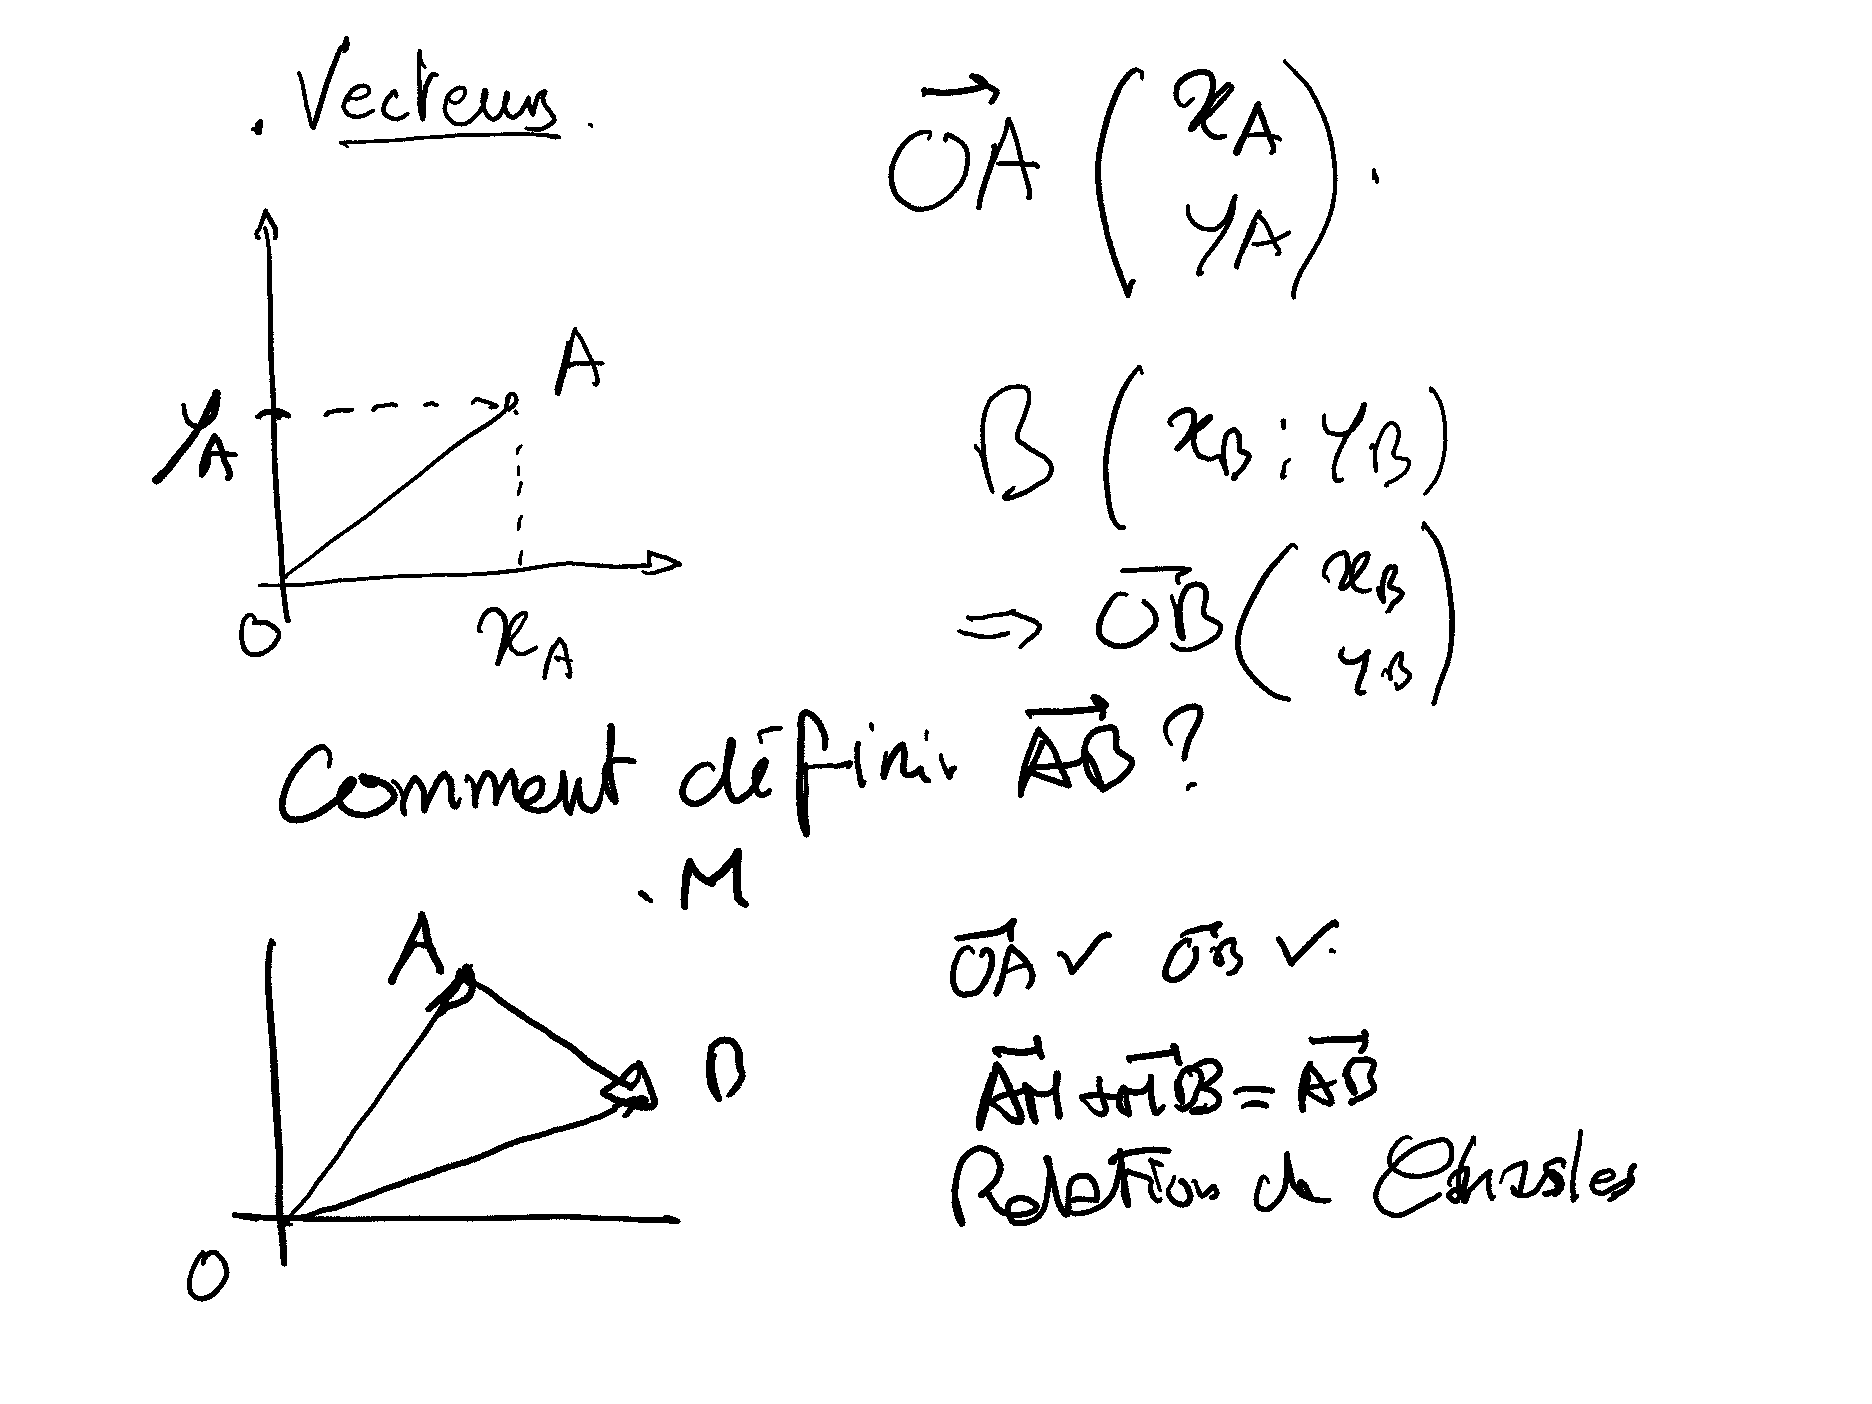 . Vecteurs.
OA→ ( xA
yA ) .
A
yA
O
xA
B ( xB ; yB )
⇒ OB ( xB
yB )
Comment définir AB→ ?
. M
A
B
O
OA ✓ OB ✓.
AM + MB = AB
Relation de Chasles